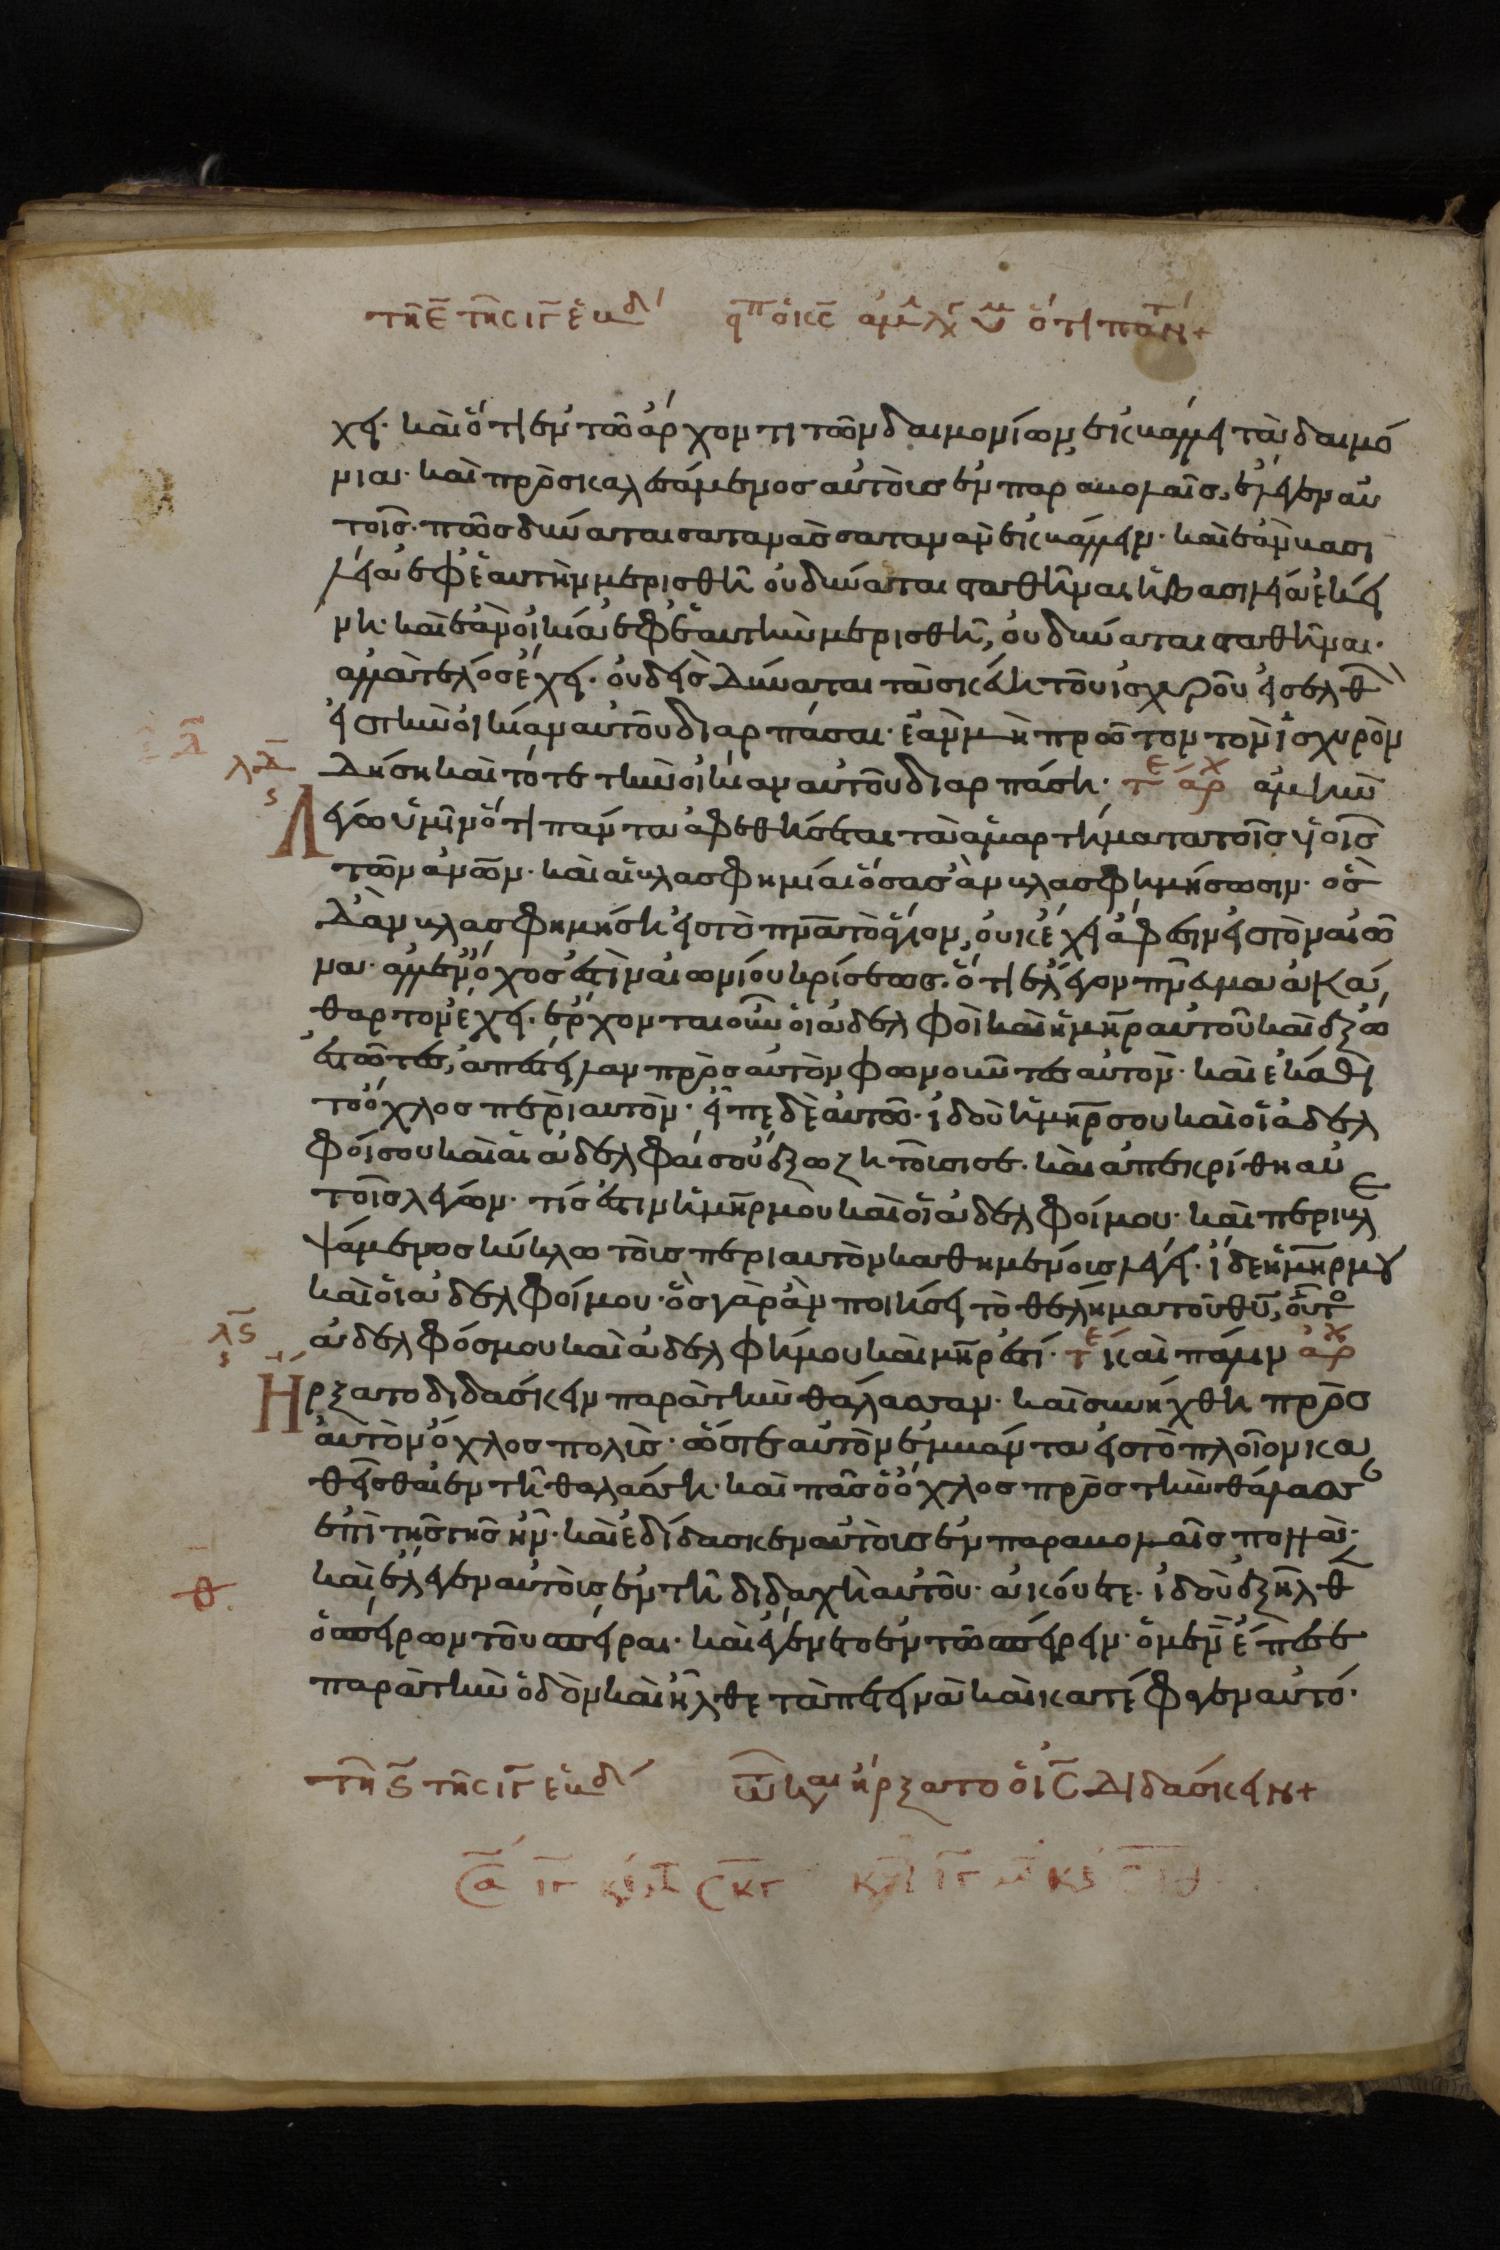 τῆ ε̄ τῆς ιγ̄ ἑβδ εἶπ ὁ ις ἀμὴν λέγω ὑμ ὅτι πάντ+
χει· καὶ ὅτι ἐν τῶ ἄρχοντι τῶν δαιμονίων ἐκβάλλει τὰ δαιμό
νια· καὶ προσκαλεσάμενος αὐτοὺς ἐν παραβολαῖς, ἔλεγεν αὐ
τοῖς· πῶς δύναται σατανᾶς σατανᾶν ἐκβάλλειν· καὶ ἐὰν βασι
λεία ἐφ' ἑαυτὴν μερισθῆ οὐ δύναται σταθῆναι ἡ βασιλεία ἐκεί
νη· καὶ ἐὰν οἰκία ἐφ' ἑαυτὴν μερισθῆ, οὐ δύναται σταθῆναι·
ἀλλὰ τέλος ἔχει· οὐδεὶς δύναται τὰ σκεύη τοῦ ἰσχυροῦ εἰσελθ
εἰς τὴν οἰκίαν αὐτοῦ διαρπάσαι· ἐὰν μὴ πρῶτον τὸν ἰσχυρὸν
λδ δήση καὶ τότε τὴν οἰκίαν αὐτοῦ διαρπάση· τε ἀρχ ἀμὴν
Λέγω ὑμῖν ὅτι πάντα ἀφεθήσεται τὰ ἁμαρτήματα τοῖς υἱοῖς
τῶν ἀνων· καὶ αἱ βλασφημίαι ὅσας ἂν βλασφημήσωσιν· ὃς
δ' ἂν βλασφημήση εἰς τὸ πνα τὸ ἅγιον, οὐκ ἔχει ἄφεσιν εἰς τὸν αἰῶ
να· ἀλλ' ἔνοχός ἐστιν αἰωνίου κρίσεως· ὅτι ἔλεγον πνα ἀκά
θαρτον ἔχει· ἔρχονται οὖν οἱ ἀδελφοὶ καὶ ἡ μηρ αὐτοῦ καὶ ἔξω
ἑστῶτες, ἀπέστειλαν πρὸς αὐτὸν φωνοῦντες αὐτόν· καὶ ἐκάθη
το ὄχλος περὶ αὐτόν· εἶπε δὲ αὐτῶ· ἰδοὺ ἡ μηρ σου καὶ οἱ ἀδελ
φοί σου καὶ αἱ ἀδελφαί σου ἔξω ζητοῦσί σε· καὶ ἀπεκρίθη αὐ
τοῖς λέγων· τίς ἐστιν ἡ μηρ μου καὶ οἱ ἀδελφοί μου· καὶ περιβλε
ψάμενος κύκλω τοὺς περὶ αὐτὸν καθημένους λέγει· ἴδε ἡ μηρ μου
καὶ οἱ ἀδελφοί μου· ὃς γὰρ ἂν ποιήσει τὸ θέλημα τοῦ θυ, οὗτο
λϛ ἀδελφός μου καὶ ἀδελφή μου καὶ μηρ ἐστί· τε καὶ πάλιν ἀρχ
Ἤρξατο διδάσκειν παρὰ τὴν θάλασσαν· καὶ συνήχθη πρὸς
αὐτὸν ὄχλος πολύς· ὥστε αὐτὸν ἐμβάντα εἰς τὸ πλοῖον κα
θεῖσθαι ἐν τῆ θαλάσση· καὶ πᾶς ὁ ὄχλος πρὸς τὴν θάλασσ
ἐπὶ τῆς γῆς ἦν· καὶ ἐδίδασκεν αὐτοὺς ἐν παραβολαῖς πολλά·
καὶ ἔλεγεν αὐτοῖς ἐν τῆ διδαχῆ αὐτοῦ· ἀκούετε· ἰδοὺ ἐξῆλθ
θ ὁ σπείρων τοῦ σπεῖραι· καὶ ἐγένετο ἐν τῶ σπείρειν· ὃ μὲν ἔπεσε
παρὰ τὴν ὁδὸν καὶ ἦλθε τὰ πετεινὰ καὶ κατέφαγεν αὐτό·
τῆ ϛ̄ τῆς ιγ̄ ἑβδ τῶ και ἤρξατο ὁ ις διδάσκειν+